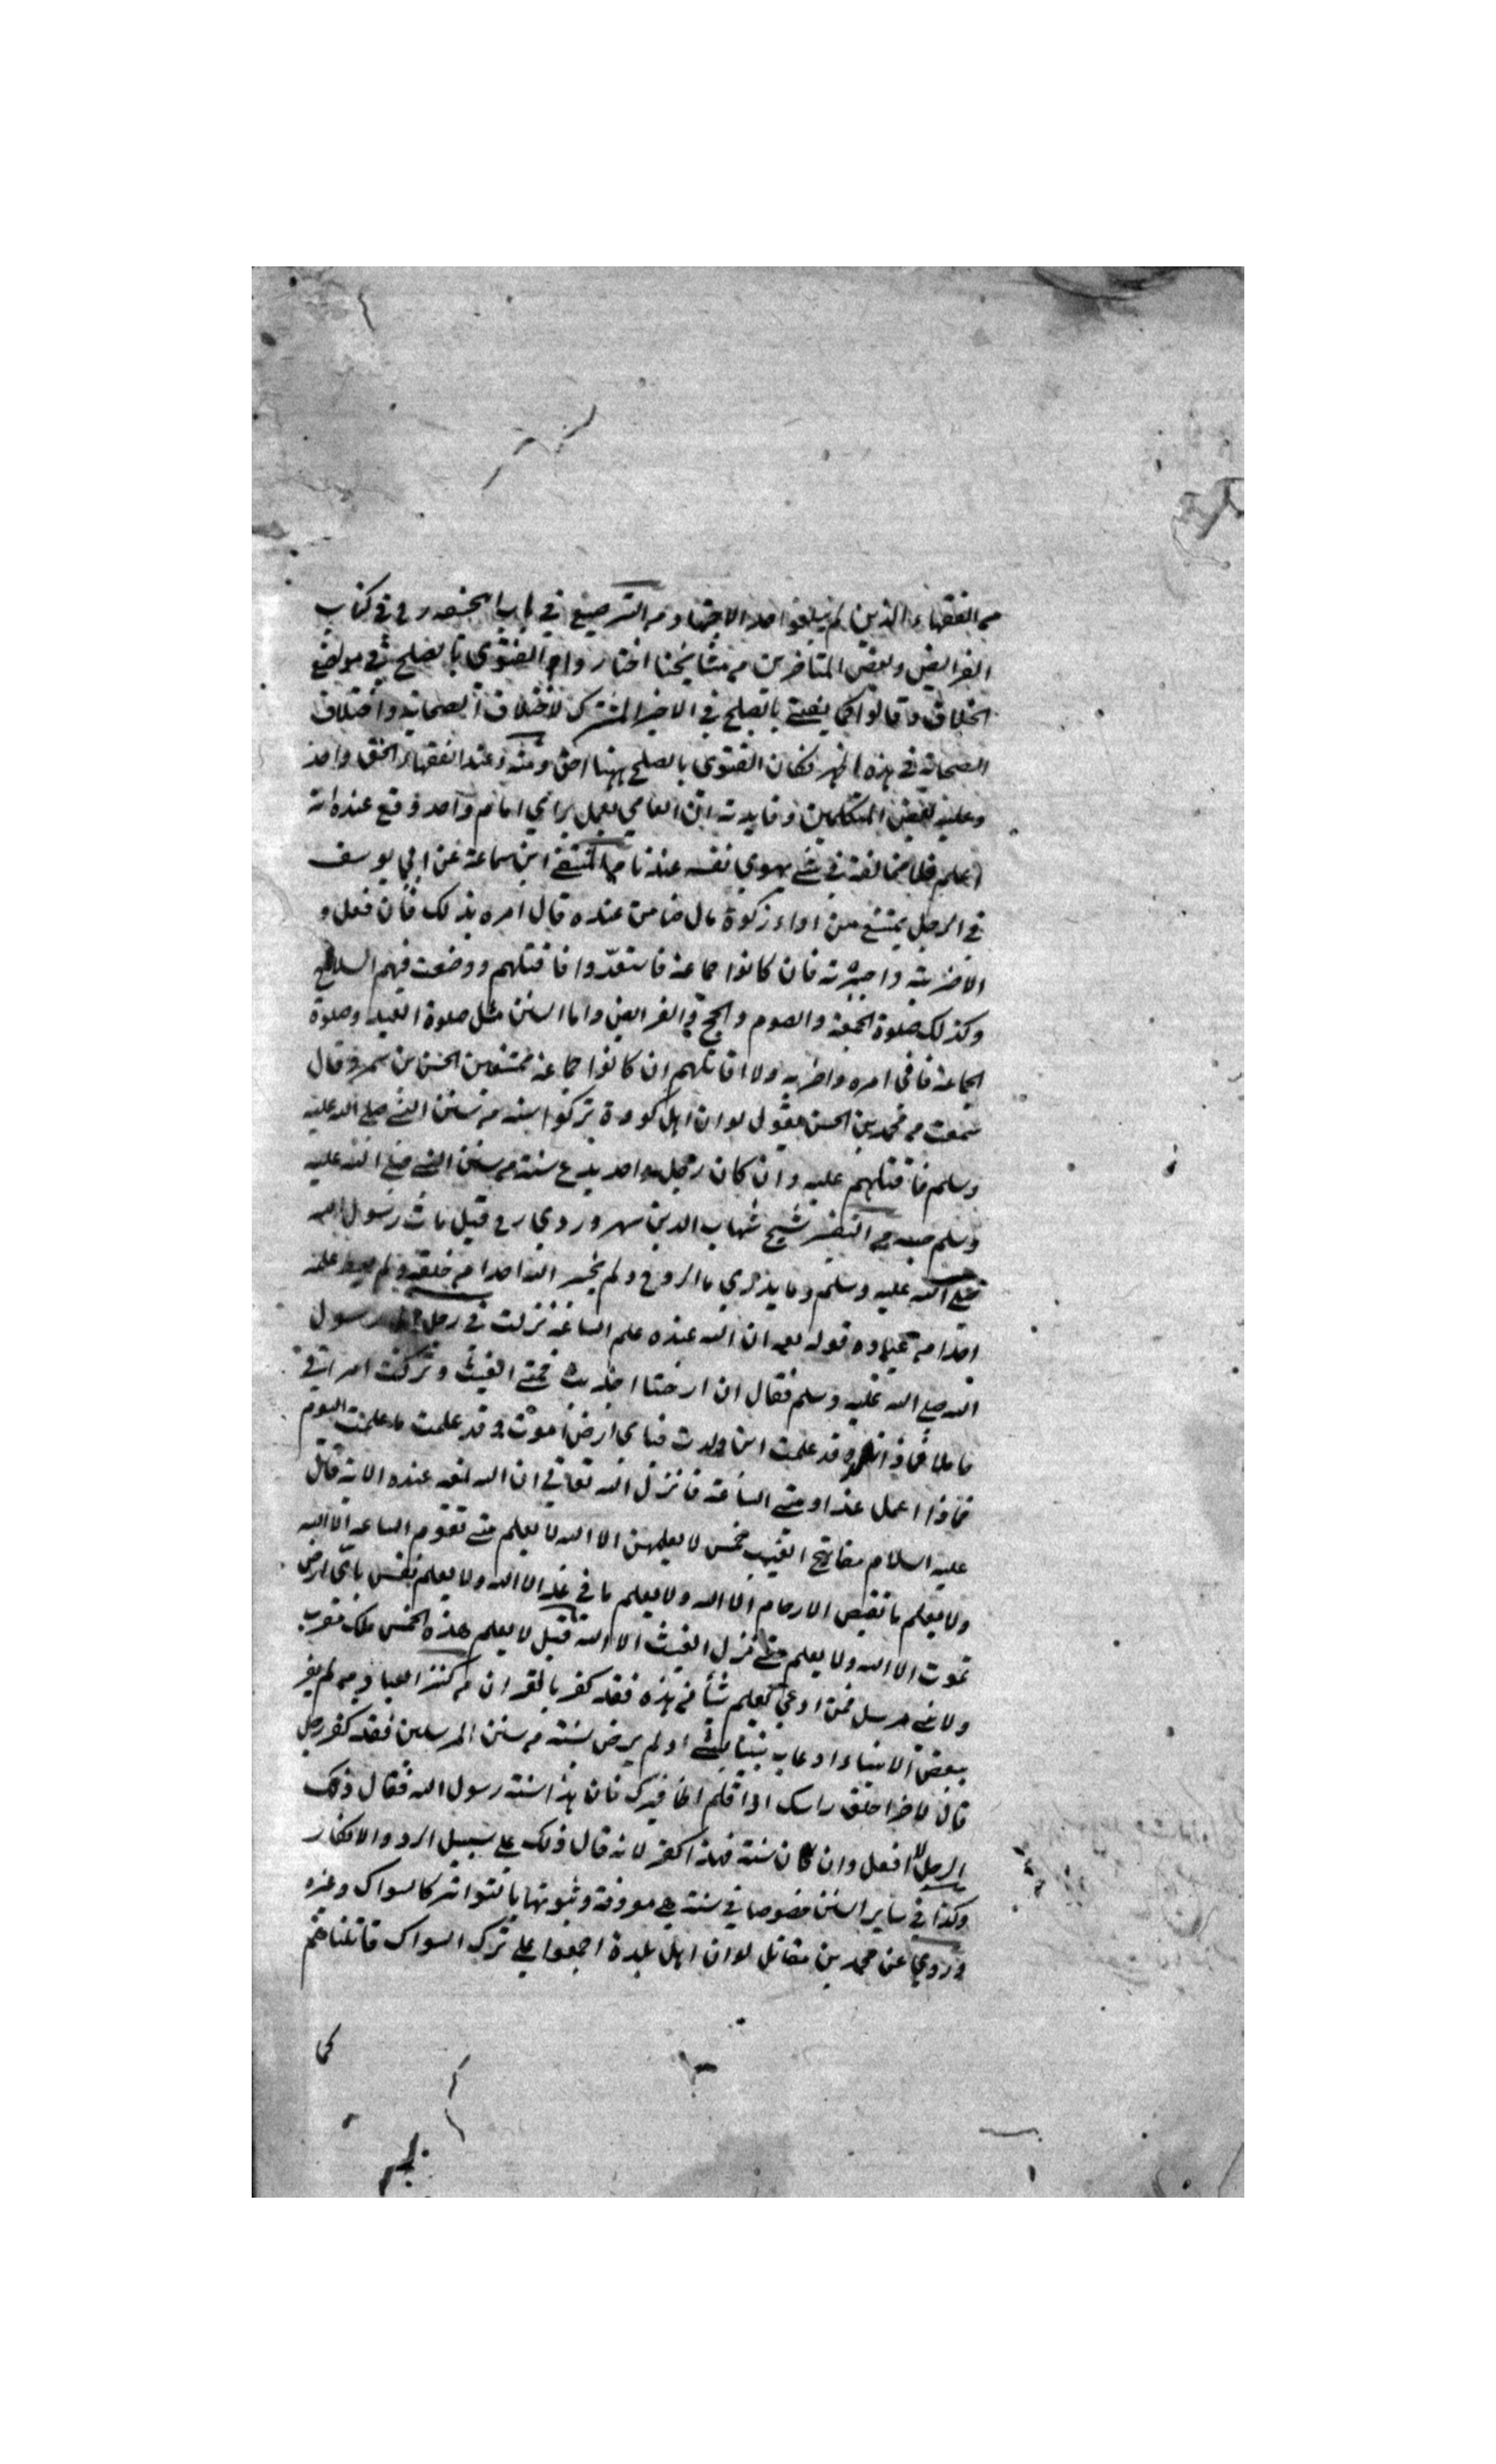 من الفقهاء الذين لم يبلغوا حد الاجتهاد من الترصيع في باب في كتاب
الفرايض وبعض المتاخرين من مشايخنا اختاروا الفتوى بالصلح في مواضع
الخلاف وقالوا كما يفتى بالصلح في الاجير المشترك لاختلاف الصحابة واختلاف
الصحابة في هذه اظهر فكان الفتوى بالصلح ههنا احق ومنه وعند الفقهاء الحق واحد
وعليه بعض المتكلمين وفايدته ان العامي يعمل براي امام واحد وقع عنده انه
اعلم فلا مخالفة في شي بهوى نفسه عندنا من المنتقى ابن سماعة عن ابي يوسف
في الرجل يمتنع من اداء زكوة مال ضامن عنده قال امره بذلك فان فعل و
الا ضربته واجبرته فان كانوا جماعة فاستعدوا قاتلتهم ووضعت فيهم السلاح
وكذلك صلوة الجمعة والصوم والحج في الفرايض واما السنن مثل صلوة العيد وصلوة
الجماعة فاني امره واضربه ولا اقاتلهم ان كانوا جماعة ممتنعين الحسن بن قال
سمعت من محمد بن الحسن يقول لو ان اهل كورة تركوا سنة من سنن النبي صلى الله عليه
وسلم قاتلتهم عليه وان كان رجل واحد يدع سنة من سنن النبي صلى الله عليه
وسلم من التفسير شيخ شهاب الدين سهروردي رح قيل مات رسول الله
صلى الله عليه وسلم وما يدري ما الروح ولم يخبر الله احدا من خلقه ولم يعط علمه
احدا من عباده قوله تعم ان الله عنده علم الساعة نزلت في رجل رسول
الله صلى الله عليه وسلم فقال ان ارضنا اجدبت فمتى الغيث وتركت امراتي
حاملا فماذا وقد علمت اين ولدت فباى ارض اموت وقد علمت ما علمت اليوم
فماذا اعمل غدا ومتى الساعة فانزل الله تعالى ان الله عنده الاية قال
عليه السلام مفاتيح الغيب خمس لا يعلمهن الا الله لا يعلم متى تقوم الساعة الا الله
ولا يعلم ما تغيض الارحام الا الله ولا يعلم ما في غد الا الله ولا يعلم نفس باى ارض
تموت الا الله ولا يعلم متى نزل الغيث الا الله قيل لا يعلم هذه الخمس ملك مقرب
ولا نبي مرسل فمن ادعى يعلم شيا من هذه فقد كفر بالقران من كنز العباد من لم يقر
ببعض الانبياء او عاب نبيا بشي او لم يرض بسنة من سنن المرسلين فقد كفر رجل
قال لاخر احلق راسك اذا قلم اظافيرك فان هذا سنة رسول الله فقال ذلك
الرجل لا افعل وان كان سنة فهذا كفر لانه قال ذلك على سبيل الرد والانكار
وكذا في ساير السنن خصوصا في سنة هي معروفة وثبوتها بالتواتر كالسواك وغيره
وروي عن محمد بن مقاتل لو ان اهل بلدة اجمعوا على ترك السواك قاتلناهم
كما